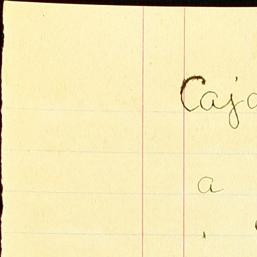 Caja
a